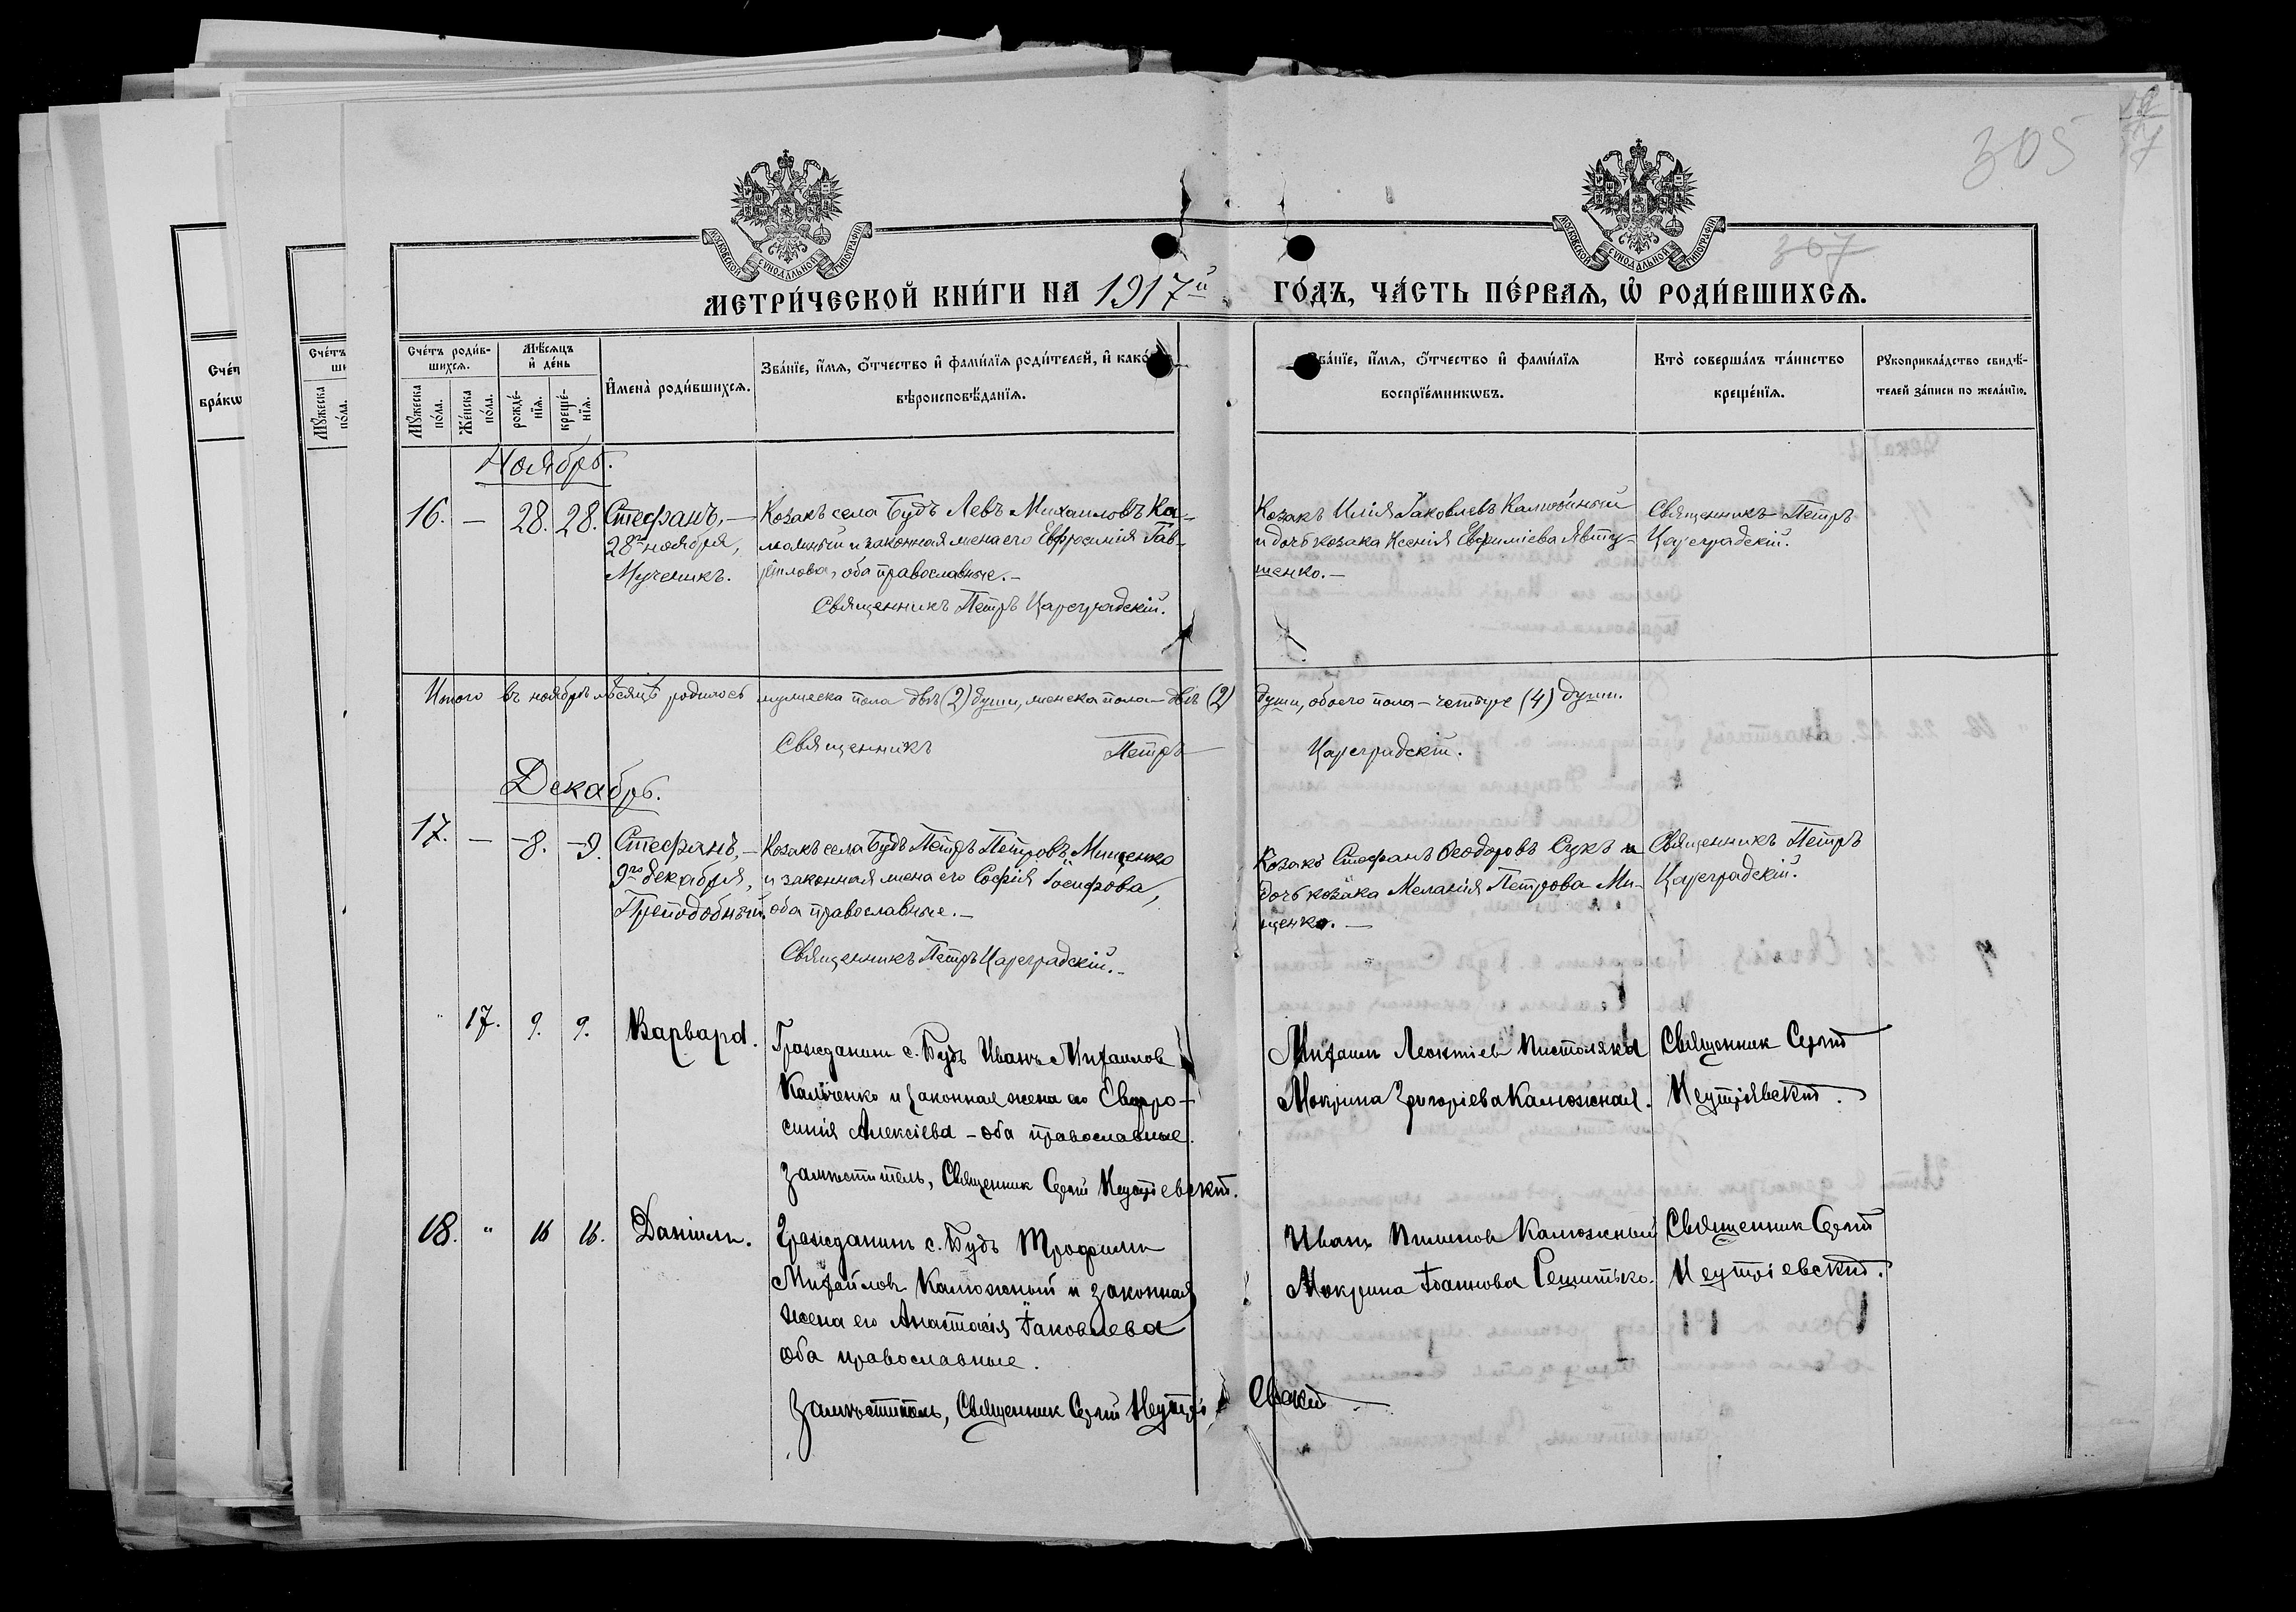 305
307
МОСКОВСКОЙ СѴНОДАЛЬНОЙ ТИПОГРАФІИ
МОСКОВСКОЙ СѴНОДАЛЬНОЙ ТИПОГРАФІИ
МЕТРИ́ЧЕСКОЙ КНИ́ГИ НА 1917й ГО́ДЪ, ЧА́СТЬ ПЕ́РВАЯ, Ѿ РОДИ́ВШИХСЯ.
Сче́тъ роди́в-
шихся.
Мꙋ́жеска по́ла.
Же́нска по́ла.
Мѣ́сяцъ и҆ де́нь
рожде́-нїя.
креще́-нїя.
И҆мена̀ роди́вшихся.
Зва́нїе, и҆́мя, ѻ҆́тчество и҆ фами́лїя роди́телей, и҆ како́
вѣроисповѣ́данїя.
Зва́нїе, и҆́мя, ѻ҆́тчество и҆ фами́лїя
воспрїе́мникѡвъ.
Кто̀ соверша́лъ та́инство
креще́нїя.
Рꙋкоприкла́дство свидѣ́-
телей за́писи по жела́нїю.
Ноябрь.
16. — 28. 28. Стефанъ, —
28го ноября,
Мученикъ.
Козакъ села Будъ Левъ Михаиловъ Ка-
люжный и законная жена его Евфросинія Гав-
рiилова, оба православные. —
Священникъ Петръ Цареградскій.
Козакъ Илія Іаковлевъ Калюжный
и дочь козака Ксенія Евфиміева Явту-
шенко. —
Священникъ Петръ
Цареградскій.
Итого въ ноябрѣ мѣсяцѣ родилось мужеска пола двѣ (2) души, женска пола — двѣ (2) души, обоего пола — четыре (4) души.
Священникъ Петръ Цареградскій.
Декабрь.
17. — 8. 9. Стефанъ, —
9го декабря,
Преподобный.
Козакъ села Будъ Петръ Петровъ Мищенко
и законная жена его Софія Іосифова,
оба православные. —
Священникъ Петръ Цареградскій. —
Козакъ Стефанъ Ѳеодоровъ Сукъ и
дочь козака Меланія Петрова Ми-
щенко. —
Священникъ Петръ
Цареградскій.
" 17. 9. 9. Варвара.
Гражданинъ с. Будъ Иванъ Михаилов
Каличенко и законная жена его Евфро-
синія Алексіева — оба православные.
Замѣститель, Священник Сергій Неутріевскій.
Михаилъ Леонтіев
Мокрина Григоріева Калюжная.
Священник Сергій
Неутріевскій.
18. " 16 16. Даніилъ.
Гражданинъ с. Будъ Трофимъ
Михайлов Калюжный и законная
жена его Анастасія Іаковлева
оба православные.
Замѣститель, Священник Сергій Неутріевскій
Иванъ Пименов Калюжный
Мокрина Іоаннова Решитько.
Священник Сергій
Неутріевскій.